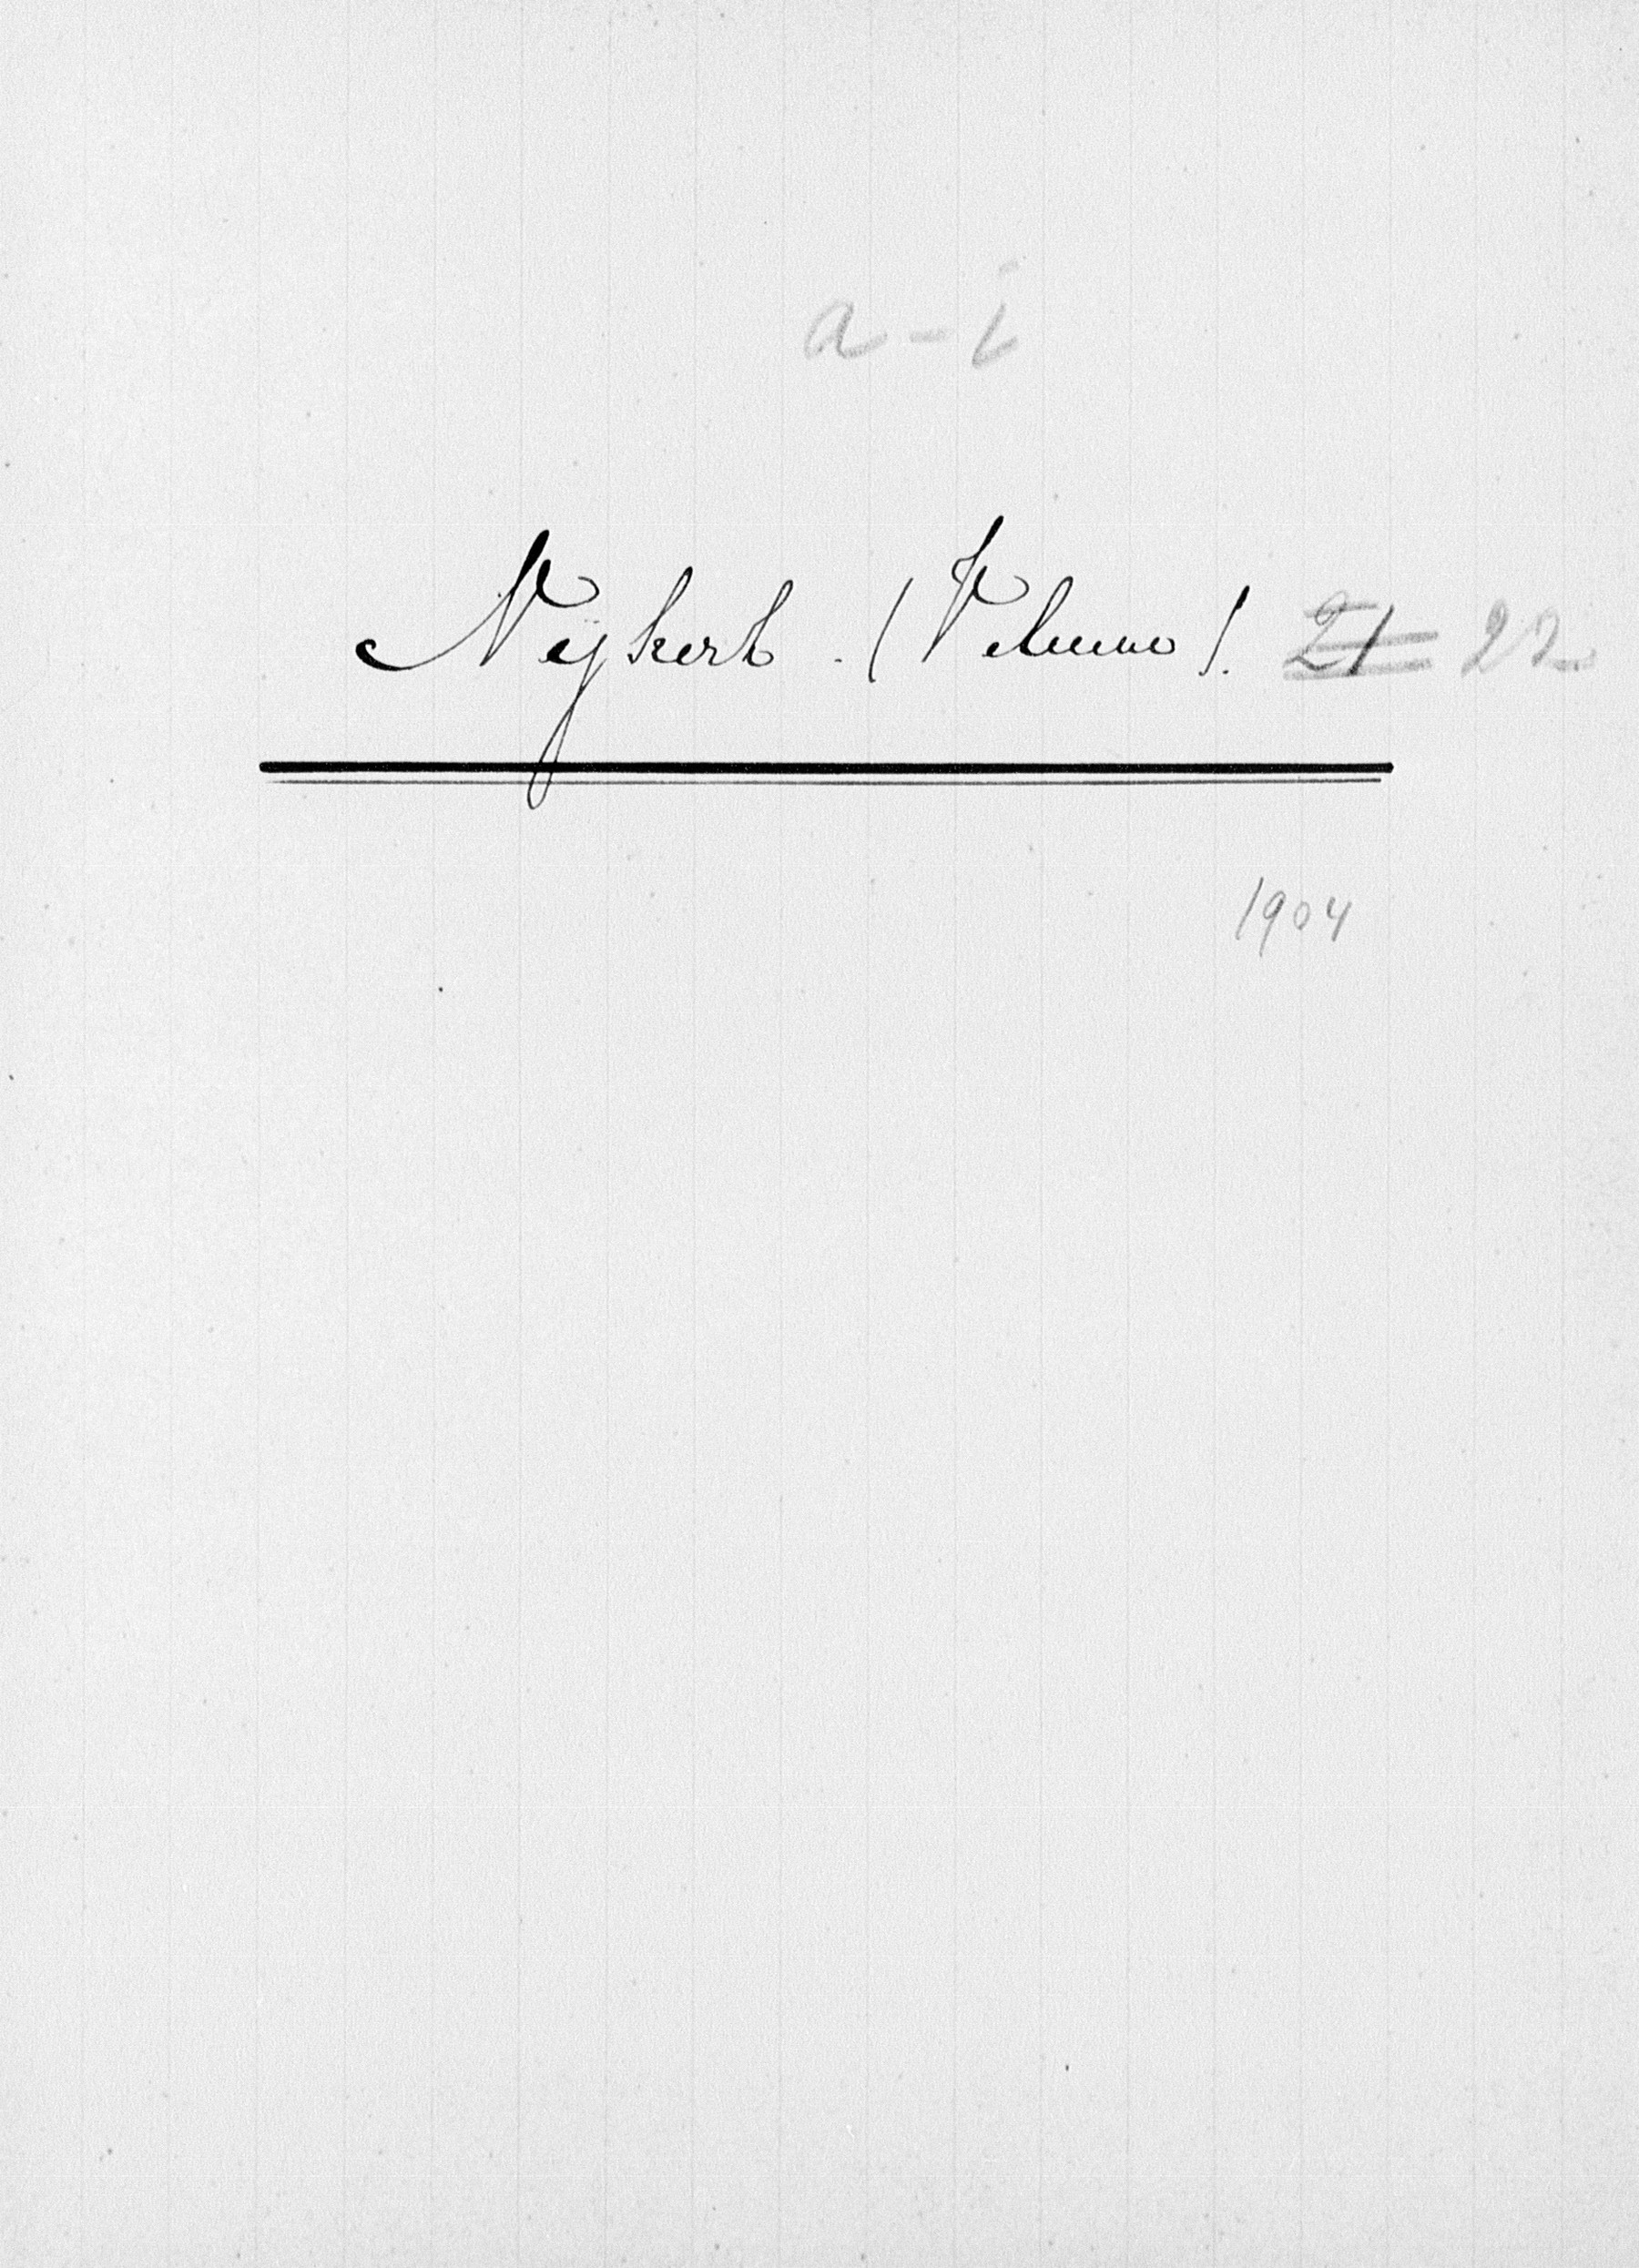 a - i
Nijkerk. (Veluwe). 21 22
1904